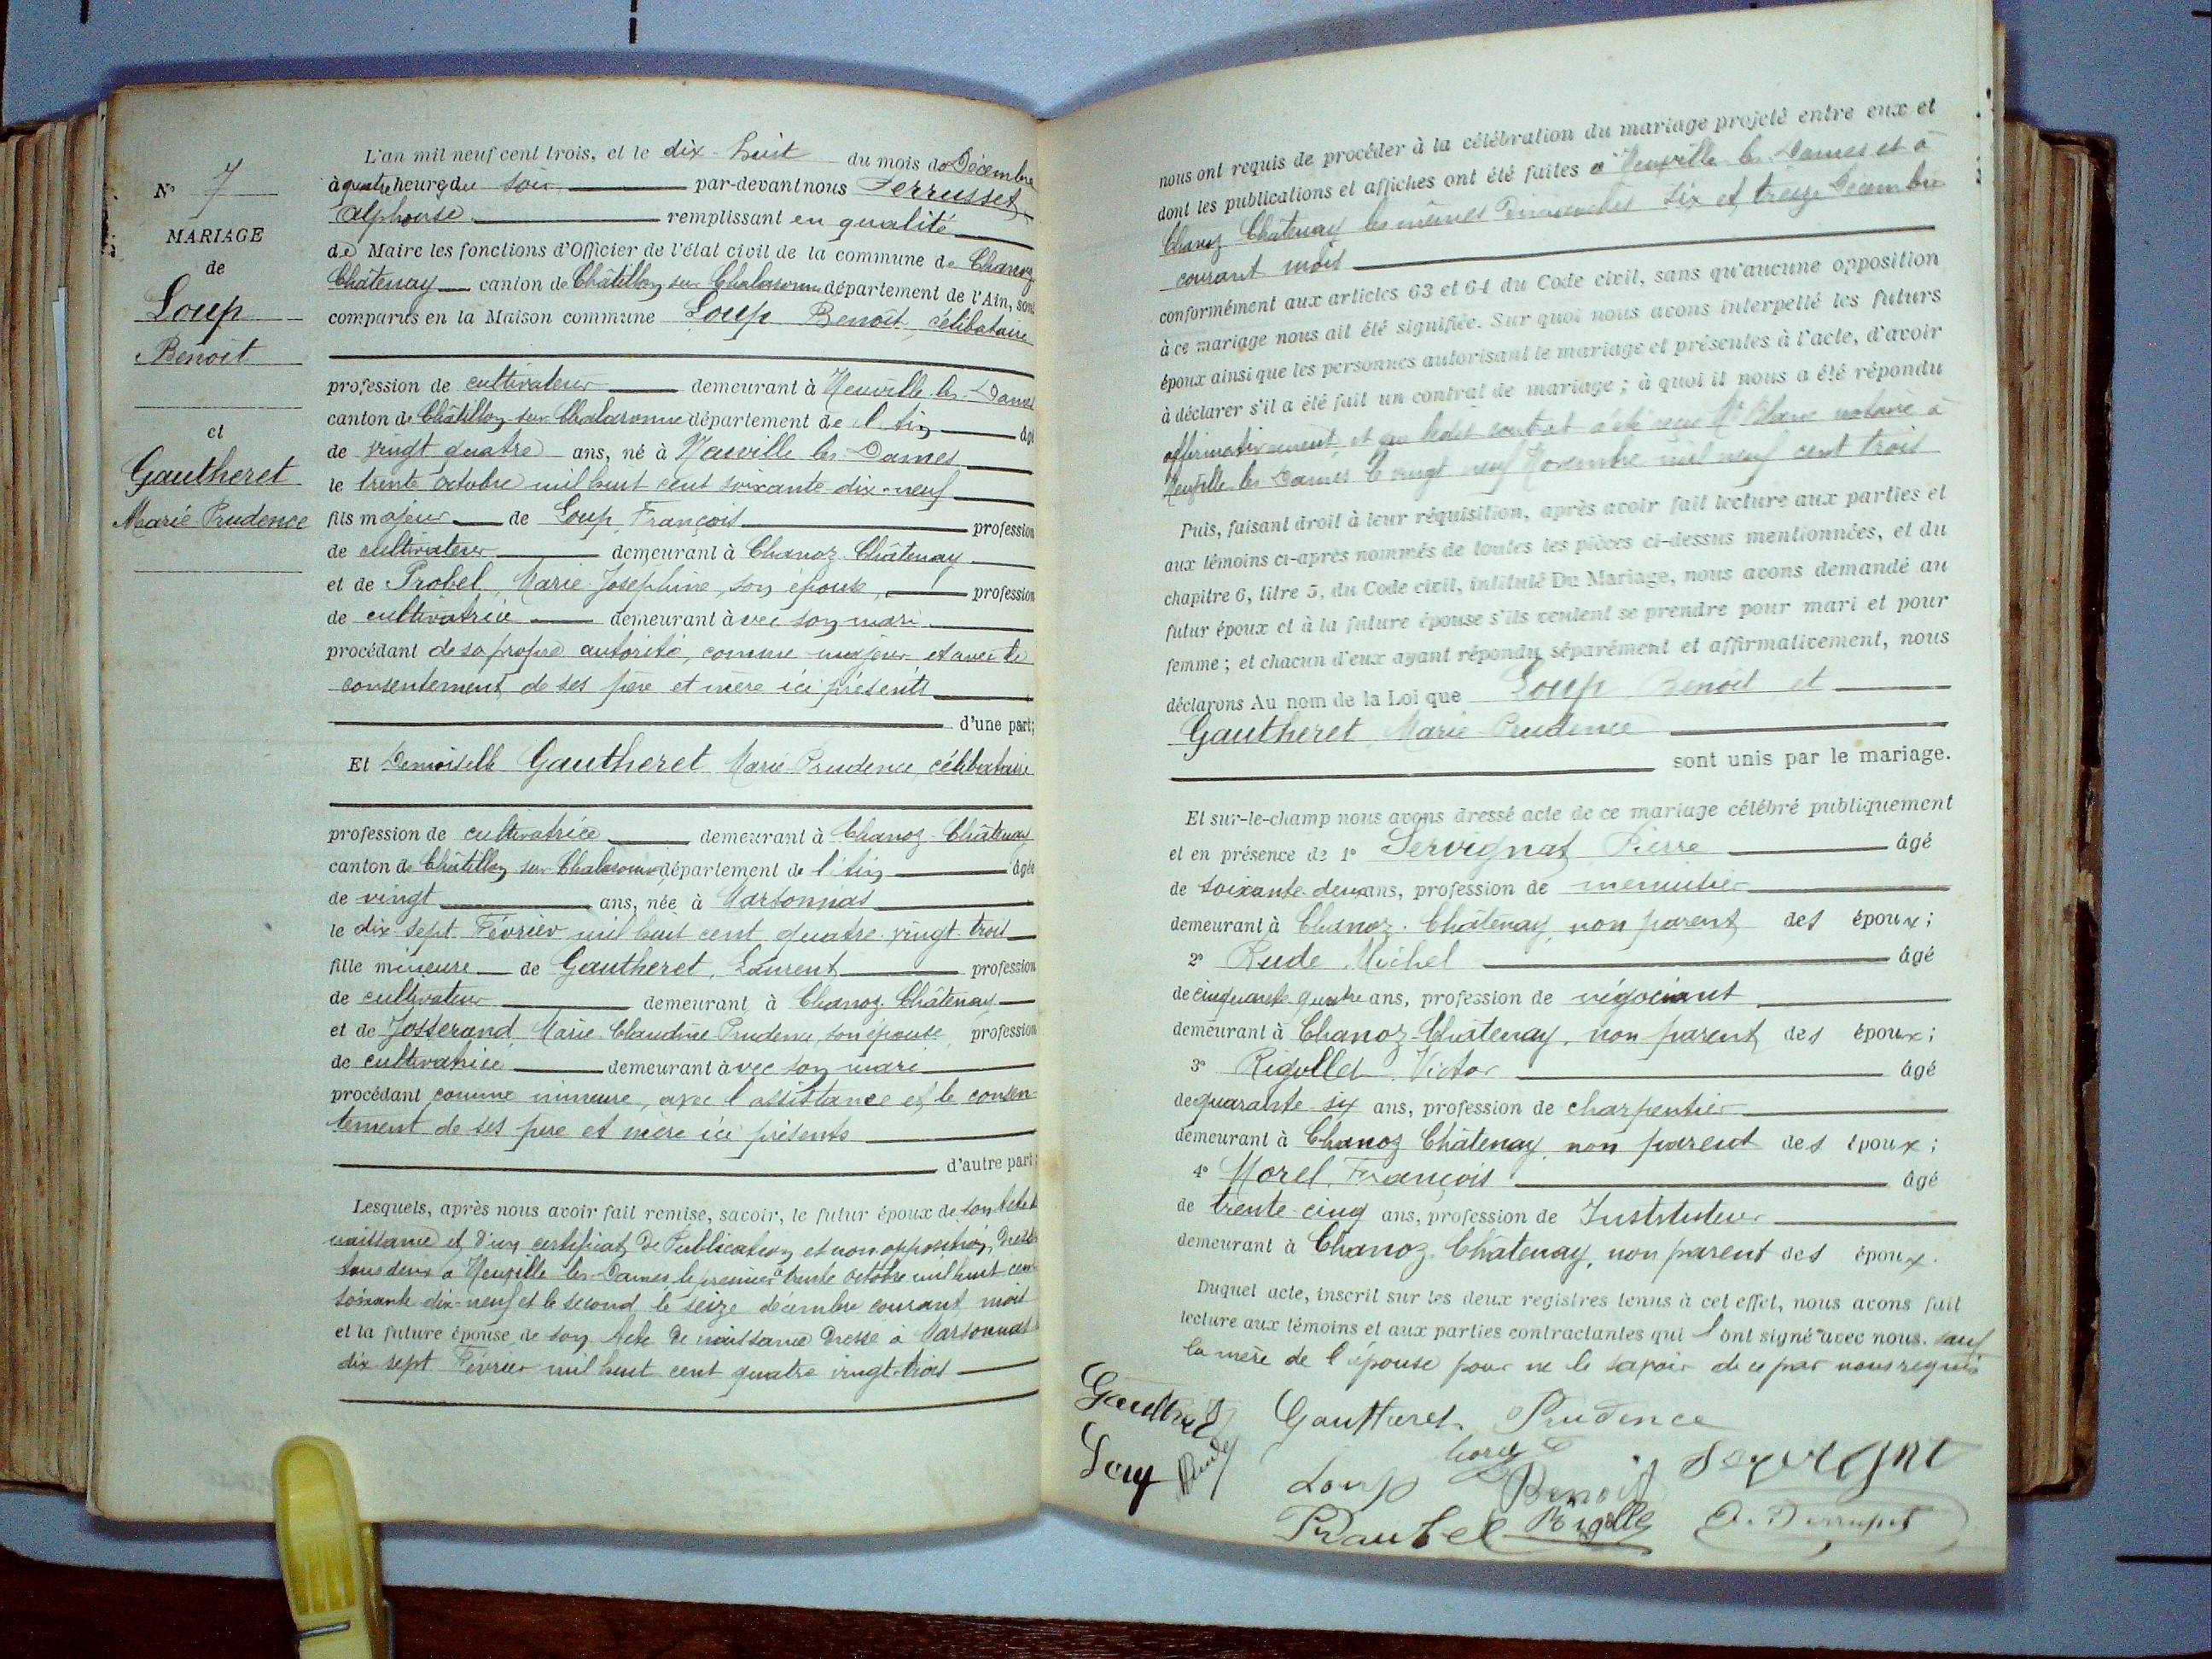 N° 7
MARIAGE
de
Loup
Benoit
et
Gautheret
Marie Prudence
L'an mil neuf cent trois, et le dix-huit du mois de Décembre
à quatre heures du soir par-devant nous Ferrusset
Alphonse remplissant en qualité
de Maire les fonctions d'Officier de l'état civil de la commune de Chanoz
Châtenay canton de Châtillon sur Chalaronne département de l'Ain, sont
comparus en la Maison commune Loup Benoit, célibataire
profession de cultivateur demeurant à Neuville-les-Dames
canton de Châtillon sur Chalaronne département de l'Ain âgé
de vingt quatre ans, né à Neuville les Dames
le trente octobre mil huit cent soixante dix-neuf
fils majeur de Loup François profession
de cultivateur demeurant à Chanoz-Châtenay
et de Probel, Marie-Joséphine, son épouse, profession
de cultivatrice demeurant avec son mari
procédant de sa propre autorité, comme majeur et avec le
consentement de ses père et mère ici présents
d'une part;
Et Demoiselle Gautheret Marie Prudence, célibataire
profession de cultivatrice demeurant à Chanoz-Châtenay
canton de Châtillon sur Chalaronne département de l'Ain âgée
de vingt ans, née à Marsonnas
le dix-sept Février mil huit cent quatre-vingt-trois
fille mineure de Gautheret, Laurent profession
de cultivateur demeurant à Chanoz-Châtenay
et de Josserand Marie Claudine Prudence, son épouse profession
de cultivatrice demeurant avec son mari
procédant comme mineure, avec l'assistance et le consen-
tement de ses père et mère ici présents
d'autre part;
Lesquels, après nous avoir fait remise, savoir, le futur époux de son acte de
naissance et d'un certificat de Publication et non opposition, dressés
tous deux à Neuville les-Dames le premier le trente octobre mil huit cent
soixante dix-neuf et le second le seize décembre courant mois
et la future épouse de son Acte de naissance dressé à Marsonnas le
dix sept Février mil huit cent quatre vingt-trois
nous ont requis de procéder à la célébration du mariage projeté entre eux et
dont les publications et affiches ont été faites à Neuville les-Dames et à
Chanoz-Châtenay les mêmes Dimanches six et treize Décembre
courant mois
conformément aux articles 63 et 64 du Code civil, sans qu'aucune opposition
à ce mariage nous ait été signifiée. Sur quoi nous avons interpellé les futurs
époux ainsi que les personnes autorisant le mariage et présentes à l'acte, d'avoir
à déclarer s'il a été fait un contrat de mariage; à quoi il nous a été répondu
affirmativement et que ledit contrat a été reçu Me Blanc notaire à
Neuville les Dames le vingt neuf Novembre mil neuf cent trois
Puis, faisant droit à leur réquisition, après avoir fait lecture aux parties et
aux témoins ci-après nommés de toutes les pièces ci-dessus mentionnées, et du
chapitre 6, titre 5, du Code civil, intitulé Du Mariage, nous avons demandé au
futur époux et à la future épouse s'ils veulent se prendre pour mari et pour
femme; et chacun d'eux ayant répondu séparément et affirmativement, nous
déclarons Au nom de la Loi que Loup Benoit et
Gautheret Marie Prudence
sont unis par le mariage.
Et sur-le-champ nous avons dressé acte de ce mariage célébré publiquement
et en présence de 1° Servignat Pierre âgé
de soixante-deux ans, profession de menuisier
demeurant à Chanoz-Châtenay, non parent des époux;
2° Rude Michel âgé
de cinquante-quatre ans, profession de négociant
demeurant à Chanoz-Châtenay, non parent des époux;
3° Rigollet Victor âgé
de quarante six ans, profession de charpentier
demeurant à Chanoz Châtenay, non parent des époux;
4° Morel, François âgé
de trente-cinq ans, profession de Instituteur
demeurant à Chanoz-Châtenay, non parent des époux.
Duquel acte, inscrit sur les deux registres tenus à cet effet, nous avons fait
lecture aux témoins et aux parties contractantes qui l'ont signé avec nous. sauf
la mère de l'épouse pour ne le savoir de ce par nous requis
Gautheret Prudence
Loup Benoit